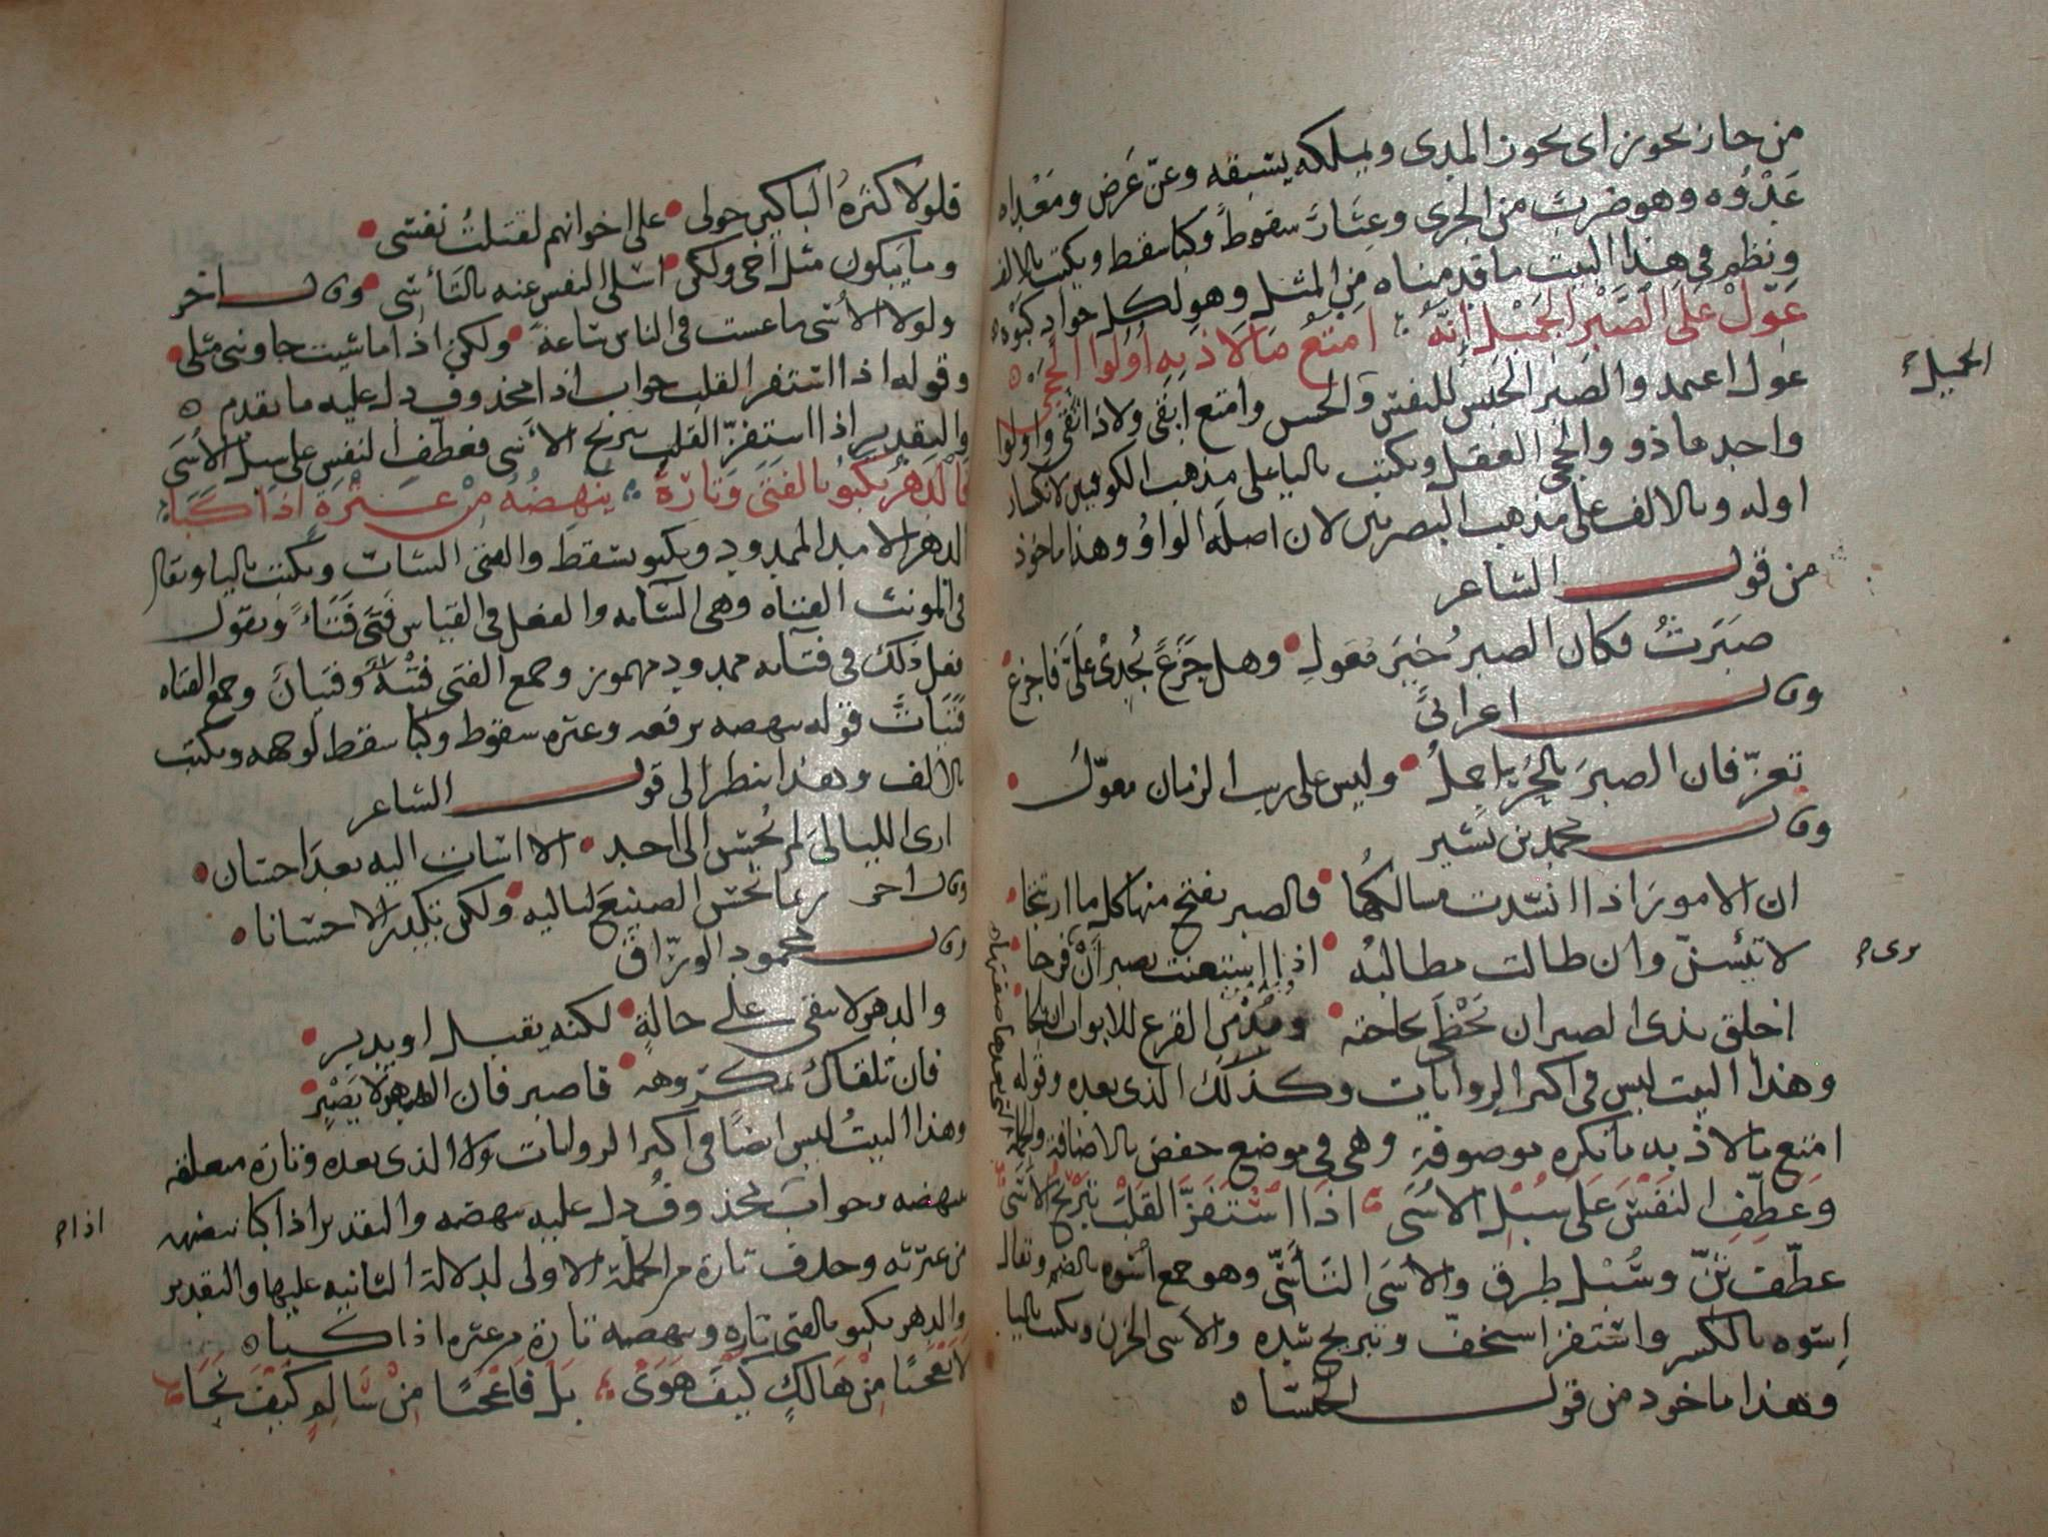 من حاز يحوز اى يحوز المدى ويملكه يسبقه وعنّ عَرض ومَعْداه
عَدْوُه وهو ضربٌ من الجرى وعِثار سقوط وكبا سقط ويكتب بالالف
ونظم فى هذا البيت ما قدمناه من المثل وهو لكل جواد كبوه
عَوّلْ عَلى الصَّبْرِ الجَمِيْلِ اِنَّهُ امْنَعُ مَا لَاذ بِهِ أُولُوا الحِجَى
الجميل
عول اعتمد والصبر الحبس للنفس والحبس وامنع ابقى ولاذ اتقى واولوا
واحدها ذو والحجى العقل ويكتب باليا على مذهب الكوفيين لانكسار
اوله وبالالف على مذهب البصريين لان اصله الواو وهذا ماخوذ
من قول الشاعر
صَبَرتُ فكان الصبرُ خيرَ مَعَولِ وهل جَزَعٌ يُجدِى عَلَىَّ فاجزعُ
وقال اعرابى
تعزّ فان الصبرَ بالحُرّ اجملُ وليس على ريب الزمان معوّلُ
وقال محمد بن بشير
ان الامورَ اذا انسَدت مسالكُها فالصبر يفتح منها كل ما ارتتجا
لا تيئسنّ وان طالت مطالبُه اذا استعنت بصبر أنْ فرجا
ترى
اخلق بذى الصبر ان يَحْظَى بحاجته ومُدْمن القرع للابواب ان يلجا
وهذا البيت ليس فى اكثر الروايات وكذلك الذى بعده وقوله
امنع ما لاذ به ما نكره موصوفة وهى فى موضع خفض بالاضافة والجملة
التى بعدها صفتها
وَعَطِّفِ النَفْسَ عَلَى سُبْلِ الأُسَى اذَا اسْتَفَزَّ القَلبَ تبْرِيْحُ الأَسَى
عطّف ثنّ وسُبْل طرق والأسَى التَأَسّى وهو جمع أُسْوه بالضم ويقال
اِسوه بالكسر واستفز استخفّ وتبريح شده والأسى الحزن ويكتب باليا
وهذا ماخوذ من قول الخنسا
فلولا كثرةُ الباكين حولى على اخوانهم لقتلتُ نفسى
وما يَبكون مثل أخى ولكن اسلى النفس عنه بالتأسّى وقال اخر
ولولا الأسى ما عشت فى الناس ساعة ولكن اذا ما شيت جاوبنى مثلى
وقوله اذا استفز القلب جواب اذا محذوف دل عليه ما تقدم
والتقدير اذا استفزّ القلب تبريح الأسى فعطّف النفس على سبل الأسَى
فَالدهْرُ يَكْبُو بالفَتَى وَتَارَةً يُنهِضُهُ مِنْ عَثْرَةٍ اذَا كَبَا
الدهر الامد الممدود ويكبو يسقط والفتى الشاب ويكتب باليا ويقال
فى المونث الفتاة وهى الشابه والفعل فى القياس فَتَى فَتَاءً وتقول
نقل ذلك فى فتائه ممدود مهموز وجمع الفتى فتية وفتيان وجمع الفتاه
فَتَيَاتٌ قوله ينهضه يرفعه وعثره سقوط وكبا سقط لوجهه ويكتب
بالالف وهذا ينظر الى قول الشاعر
ارى الليالىَ لم تُحْسن الى احد الا اساءت اليه بعدَ احسان
وقال اخر ربما تحسن الصنيعَ لياليه ولكن تكدر الاحسانا
وقال محمود الورّاق
والدهر لا يبقى على حالةٍ لكنه يقبل او يدبر
فان تلقاكَ بمكروهه فاصبر فان الدهر لا يَصْبر
وهذا البيتُ ليس ايضًا فى اكثر الروايات ولا الذى بعده وتارة متعلقه
بينهضه وجوابَ محذوفٌ دل عليه ينهضه والتقدير اذا كبا ينهضه
اذا
من عثرته وحذف تارة من الجملة الاولى لدلالة الثانيه عليها والتقدير
والدهر يكبو بالفتى تارة وينهضه تارة من عثره اذا كبا
لا تَعْجَبًا مِنْ هَالكٍ كَيْفَ هَوَى بَل فَاعْجَبًا مِنْ سَالمٍ كَيْفَ نَجَا